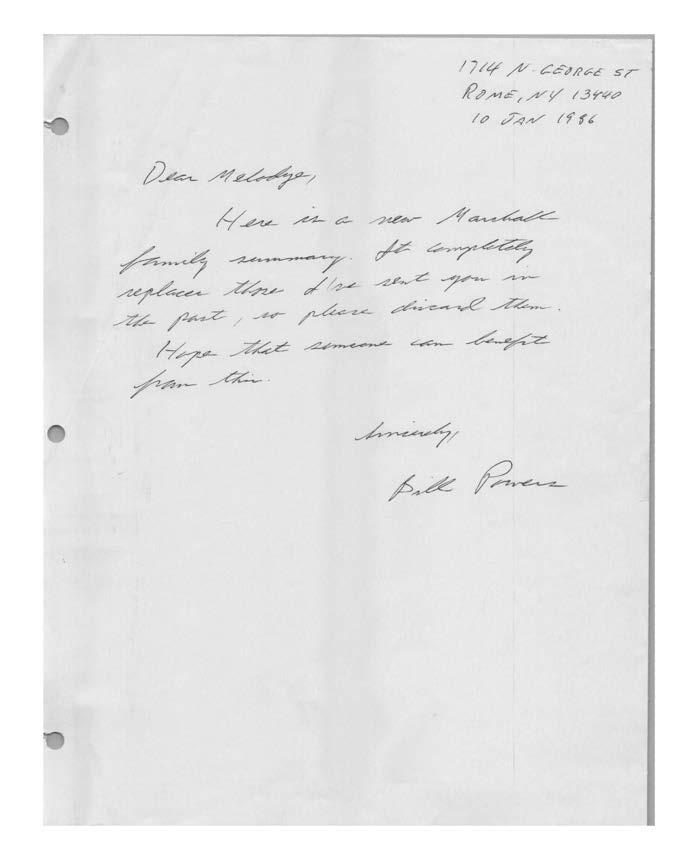 1714 N. GEORGE ST
ROME, NY 13440
10 JAN 1986
Dear Melodye,
Here is a new Marshall
family summary. It completely
replaces those I've sent you in
the past, so please discard them.
Hope that someone can benefit
from this.
Sincerely,
Bill Powers